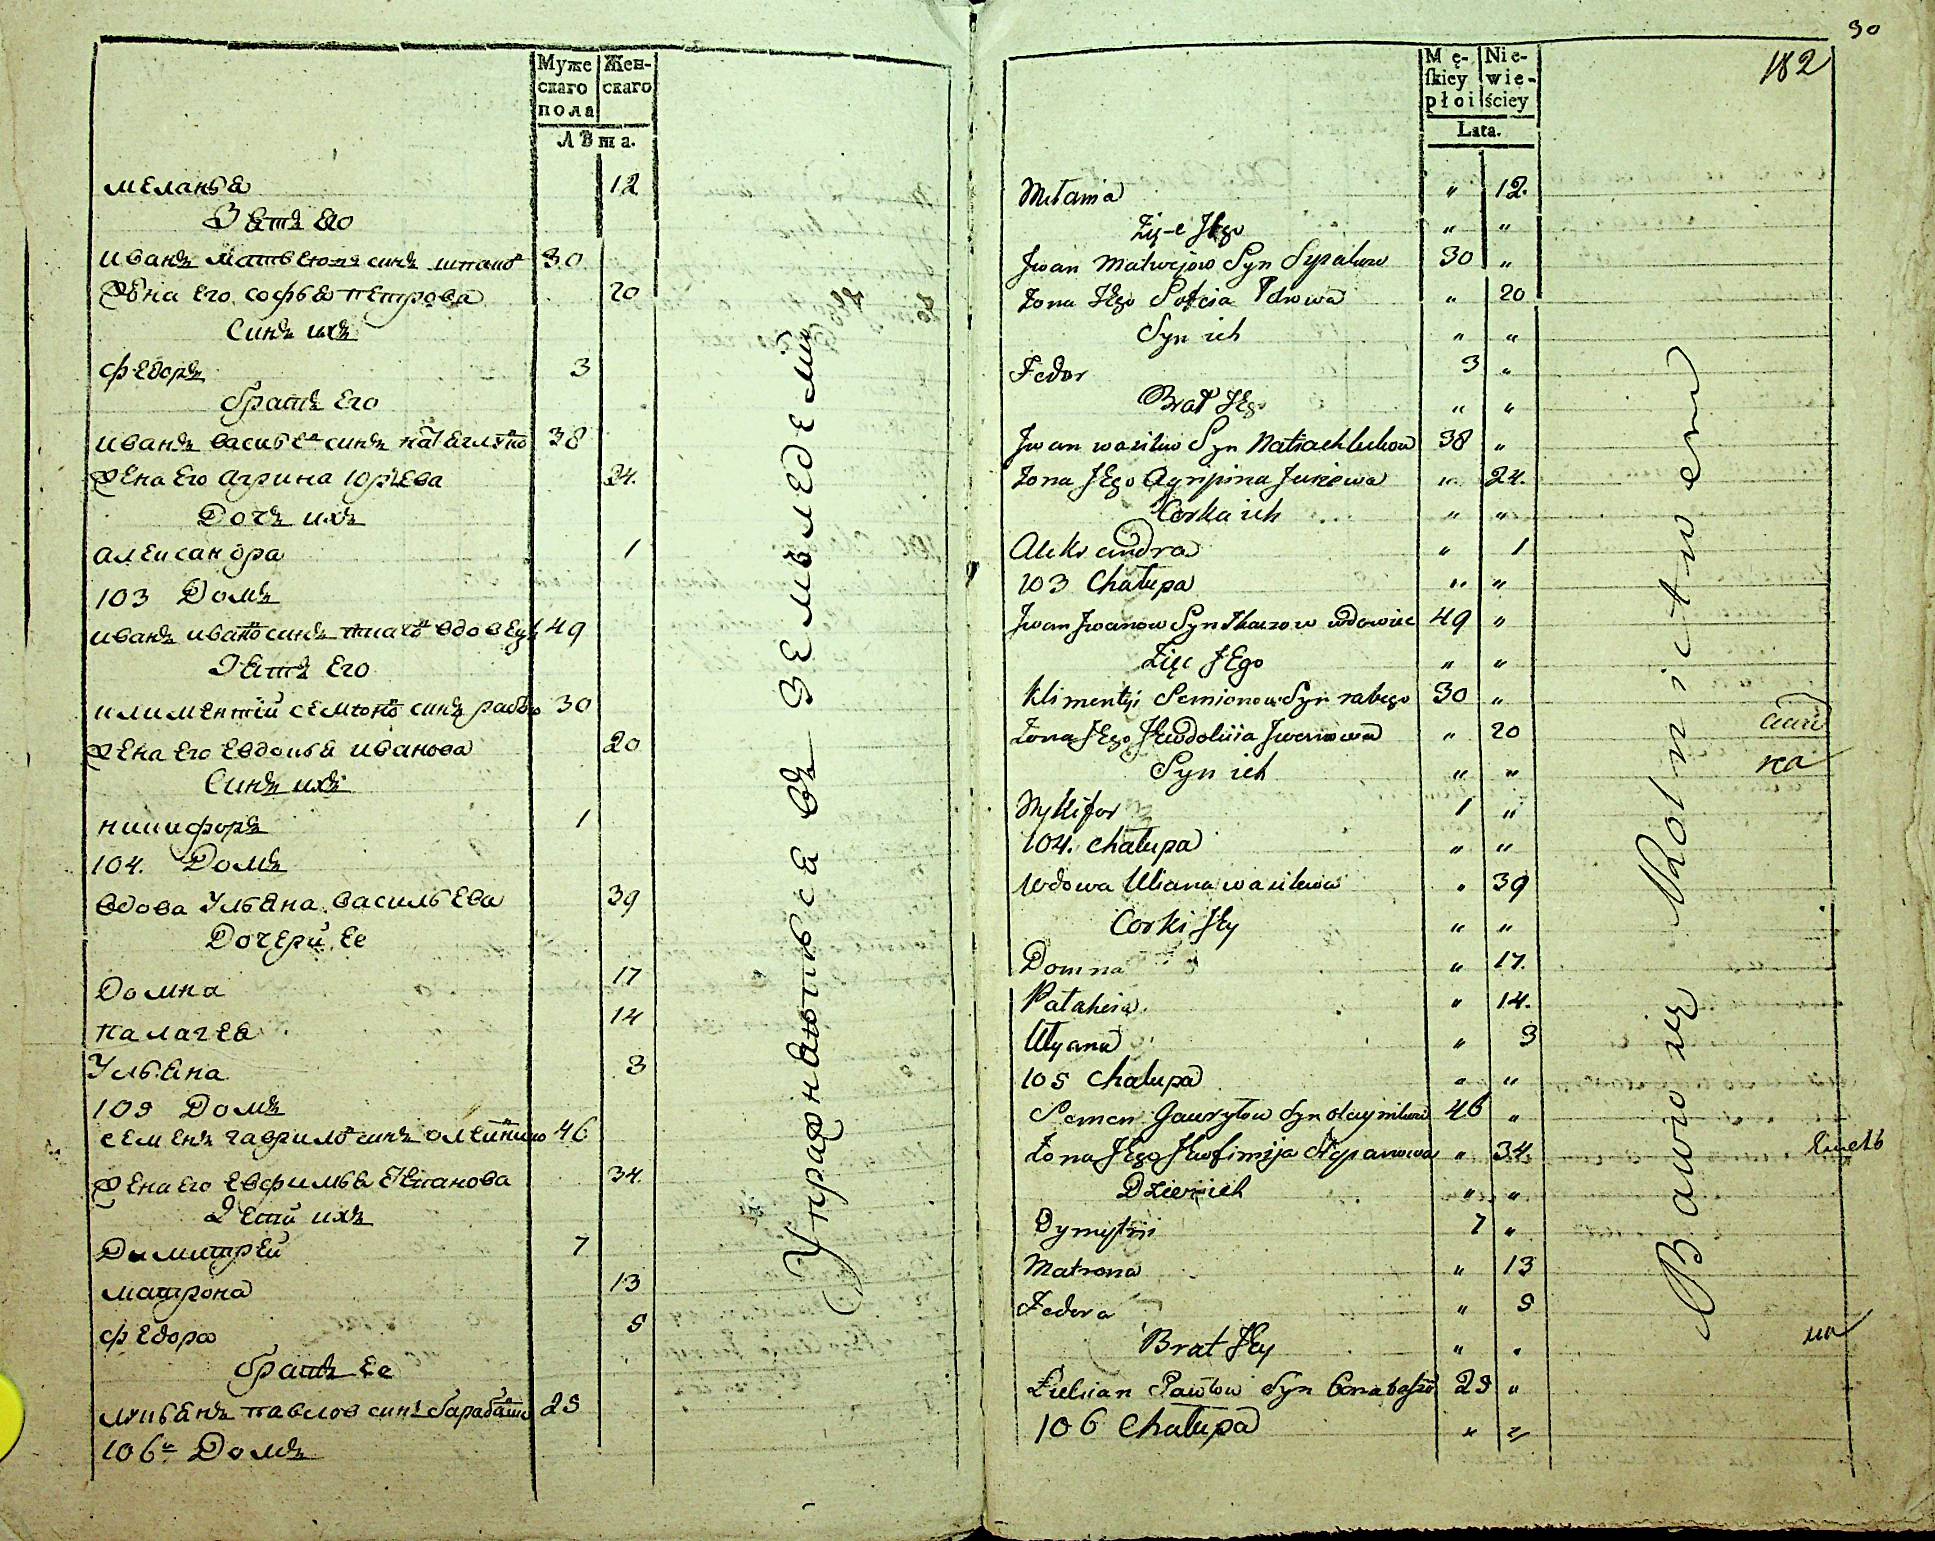 Муже
скаго
пола
Жен-
скаго
Лѣта.
меланья 12
Зять его
иванъ матвеювъ синъ 30
жена его софья петрова 20
Синъ ихъ
федоръ 3
братъ его
иванъ синъ 38
жена его агрипина юрьева 24.
Дочь ихъ
александра 1
103 Домъ
иванъ синъ ткачо вдовецъ 49
Зять его
климентий синъ 30
жена его евдокья иванова 20
Синъ ихъ
никифоръ 1
104. Домъ
вдова Ульяна васильева 39
Дочери ее
Домна 17
палагея 14
Ульяна 3
105 Домъ
семенъ гаврило синъ 46
жена его евфимья 34.
Дети ихъ
Димитрей 7
матрона 13
федора 5
братъ ее
павлов синъ 25
106й Домъ
Упражняються въ земьледели
30
182
Mę-
skiey
płoi
Nie-
wie-
ściey
Lata.
Mełania " 12.
Zię-ć Jego " "
Jwan Matwejow Syn 30 "
Zona Jego Pedrowa " 20
Syn ich " "
Fedor 3 "
Brat Jego " "
Jwan wasilew Syn 38 "
Zona Jego Agripina Juriewa " 24.
Corka ich " "
Aleksandra " 1
103 Chałupa " "
Jwan Jwanow Syn Tkaczow wdowiec 49 "
Zięc Jego " "
Klimentyi Semionow Syn rabego 30 "
Zona Jego Jewdokiia Jwanowa " 20
Syn ich " "
Nykifor 1 "
104. Chałupa " "
Wdowa Uliana wasilewa " 39
Corki Jey " "
Domna " 17.
Pałaheia " 14.
Ulyana " 3
105 Chałupa " "
Semen Gawryłow Syn 46 "
Zona Jego Jewfimija Stepanowa " 34.
Dzieci ich " "
Dymytri 7 "
Matrona " 13
Fedora " 5
Brat Jey " "
Łukian Pawłow Syn 25 "
106 Chałupa " "
Bawią się Rolnictwem